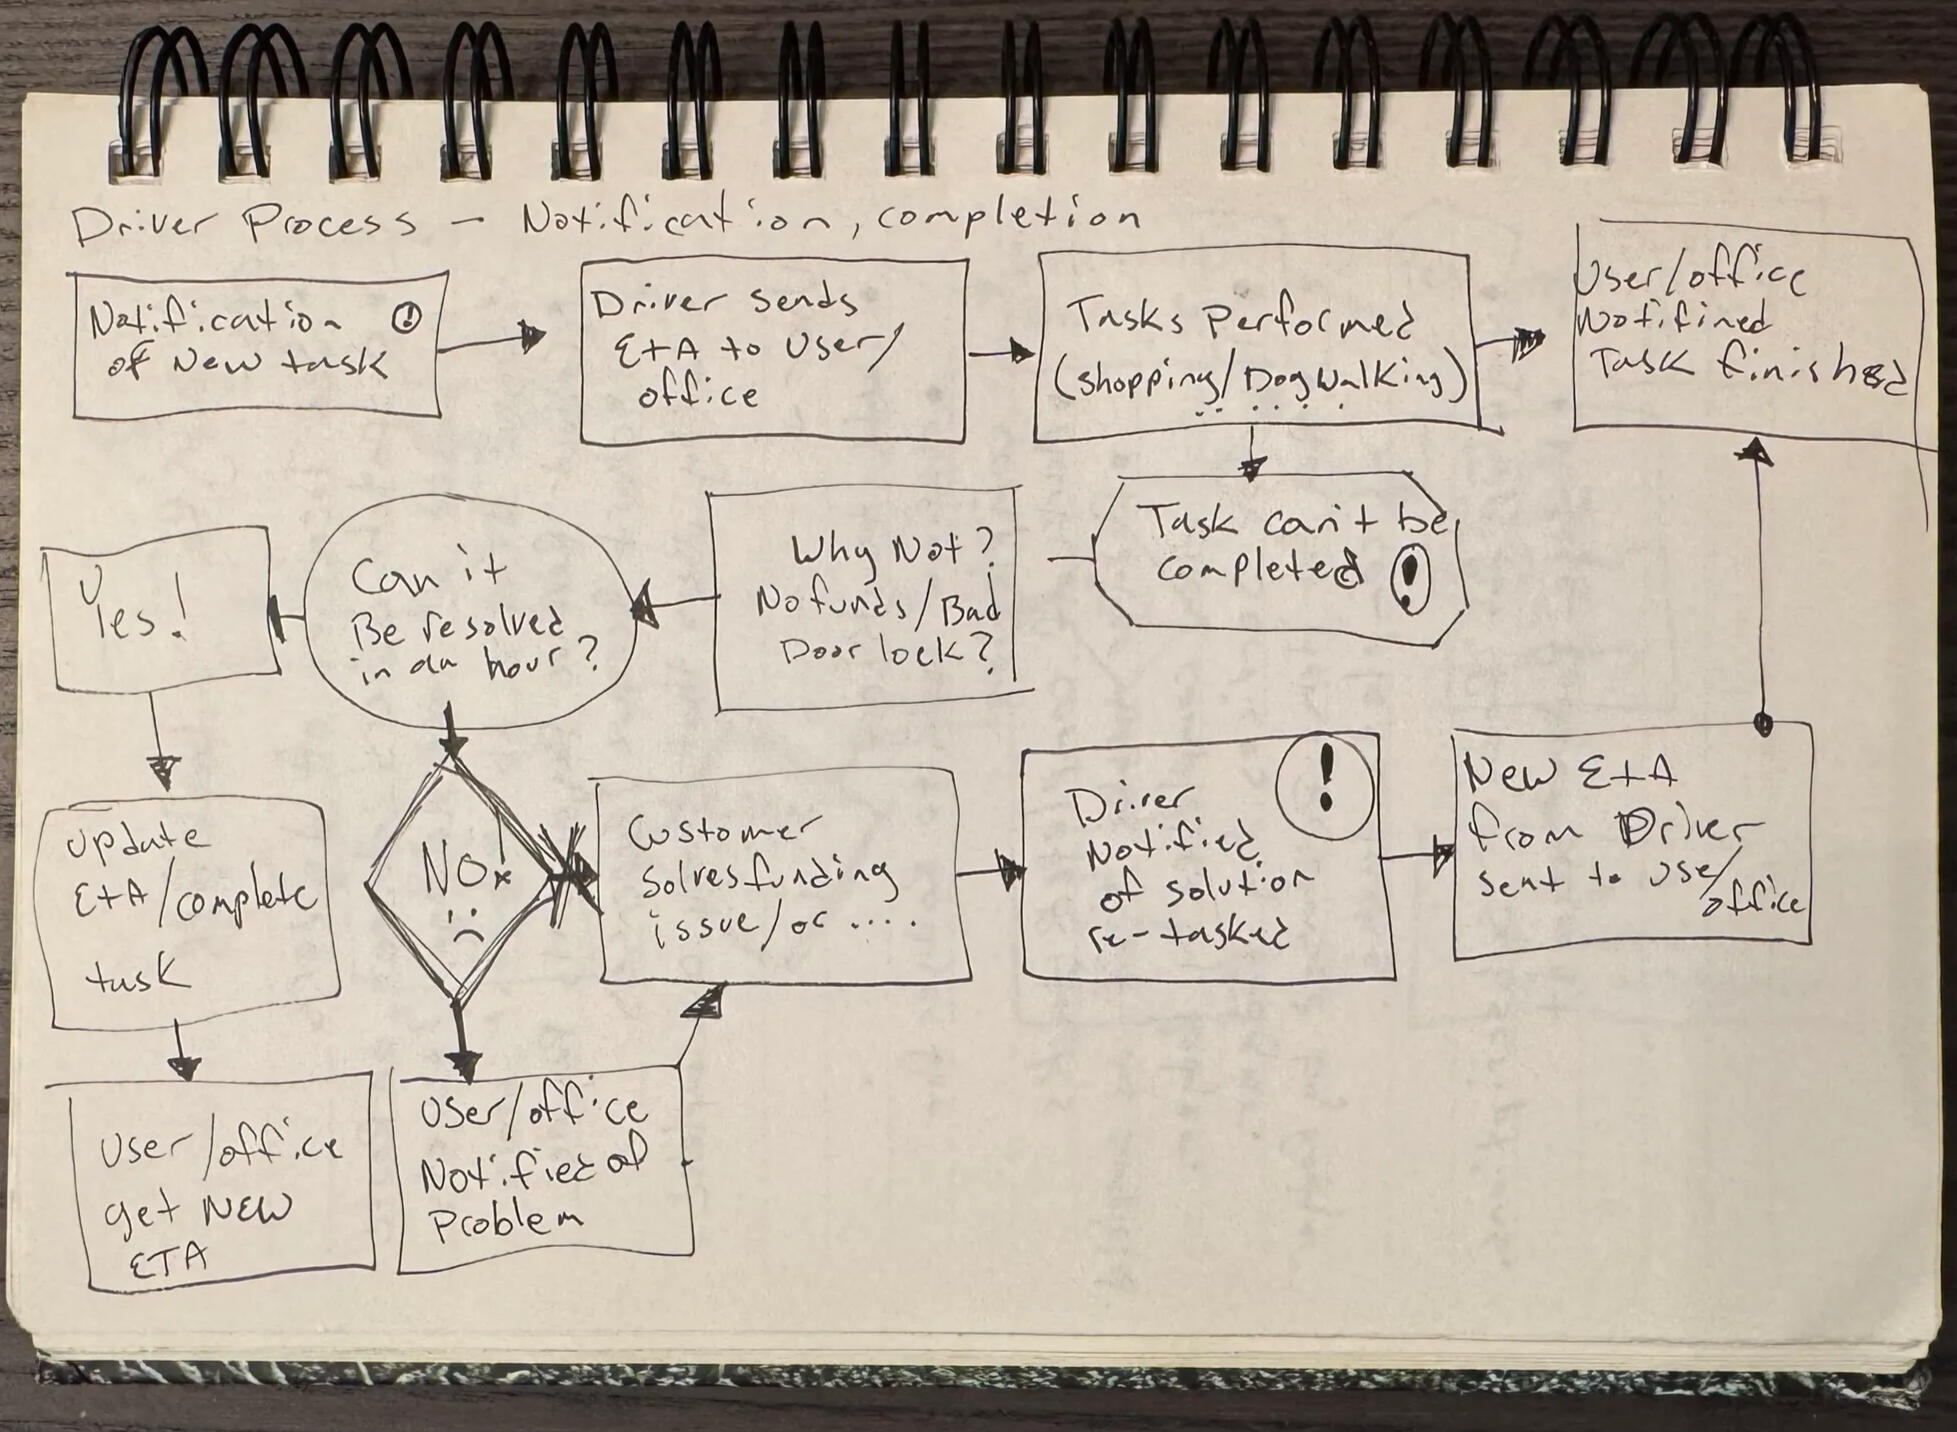 Driver Process - Notification, completion
Notification !
of New task
Driver sends
EtA to User/
office
Tasks Performed
(shopping/Dogwalking)
User/office
Notifined
Task finished
Yes!
Can it
Be resolved
in an hour?
Why Not?
No funds/Bad
Door lock?
Task can't be
completed !
Update
EtA/complete
task
NO!
:(
Customer
solves funding
issue/or ....
!
Driver
Notified
of solution
re-tasked
New EtA
from Driver
sent to Use/
office
User/office
get New
ETA
User/office
Notified of
Problem